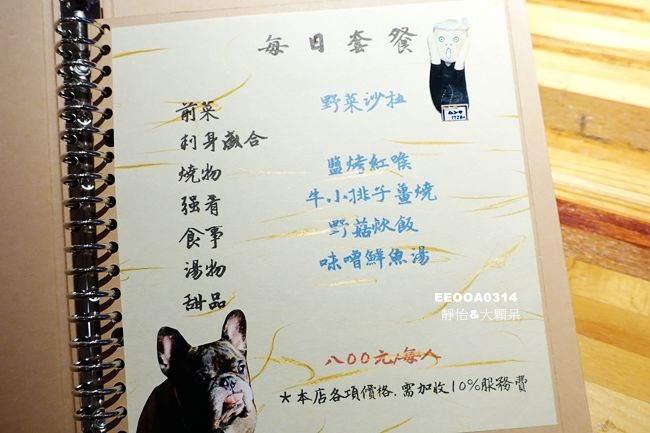 每日套餐
前菜 野菜沙拉
刺身盛合
燒物 鹽烤紅喉
强肴 牛小排子薑燒
食事 野菇炊飯
湯物 味噌鮮魚湯
甜品
EEOOA0314
靜怡&大顆呆
八00元/每人
*本店各項價格.需加收10%服務費